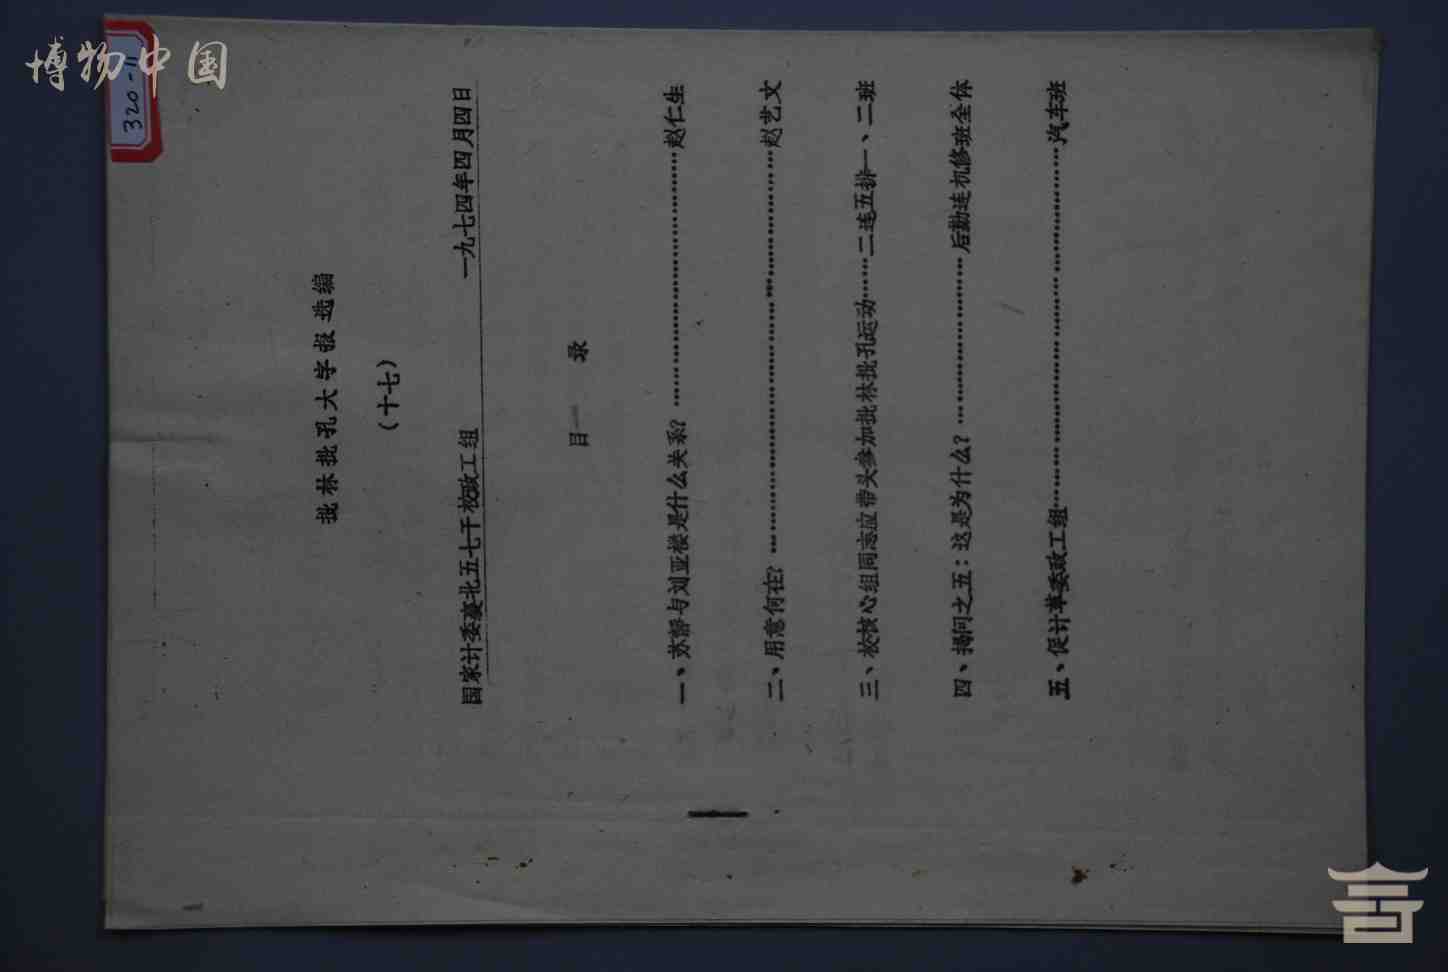 博物中国
320-11
批林批孔大字报选编
（十七）
国家计委襄北五七干校政工组 一九七四年四月四日
目录
一、苏静与刘亚楼是什么关系？……………………赵仁生
二、用意何在？……………………………………赵艺文
三、校核心组同志应带头参加批林批孔运动……二连五排一、二班
四、揭问之五：这是为什么？………………后勤连机修班全体
五、促计革委政工组……………………………………汽车班